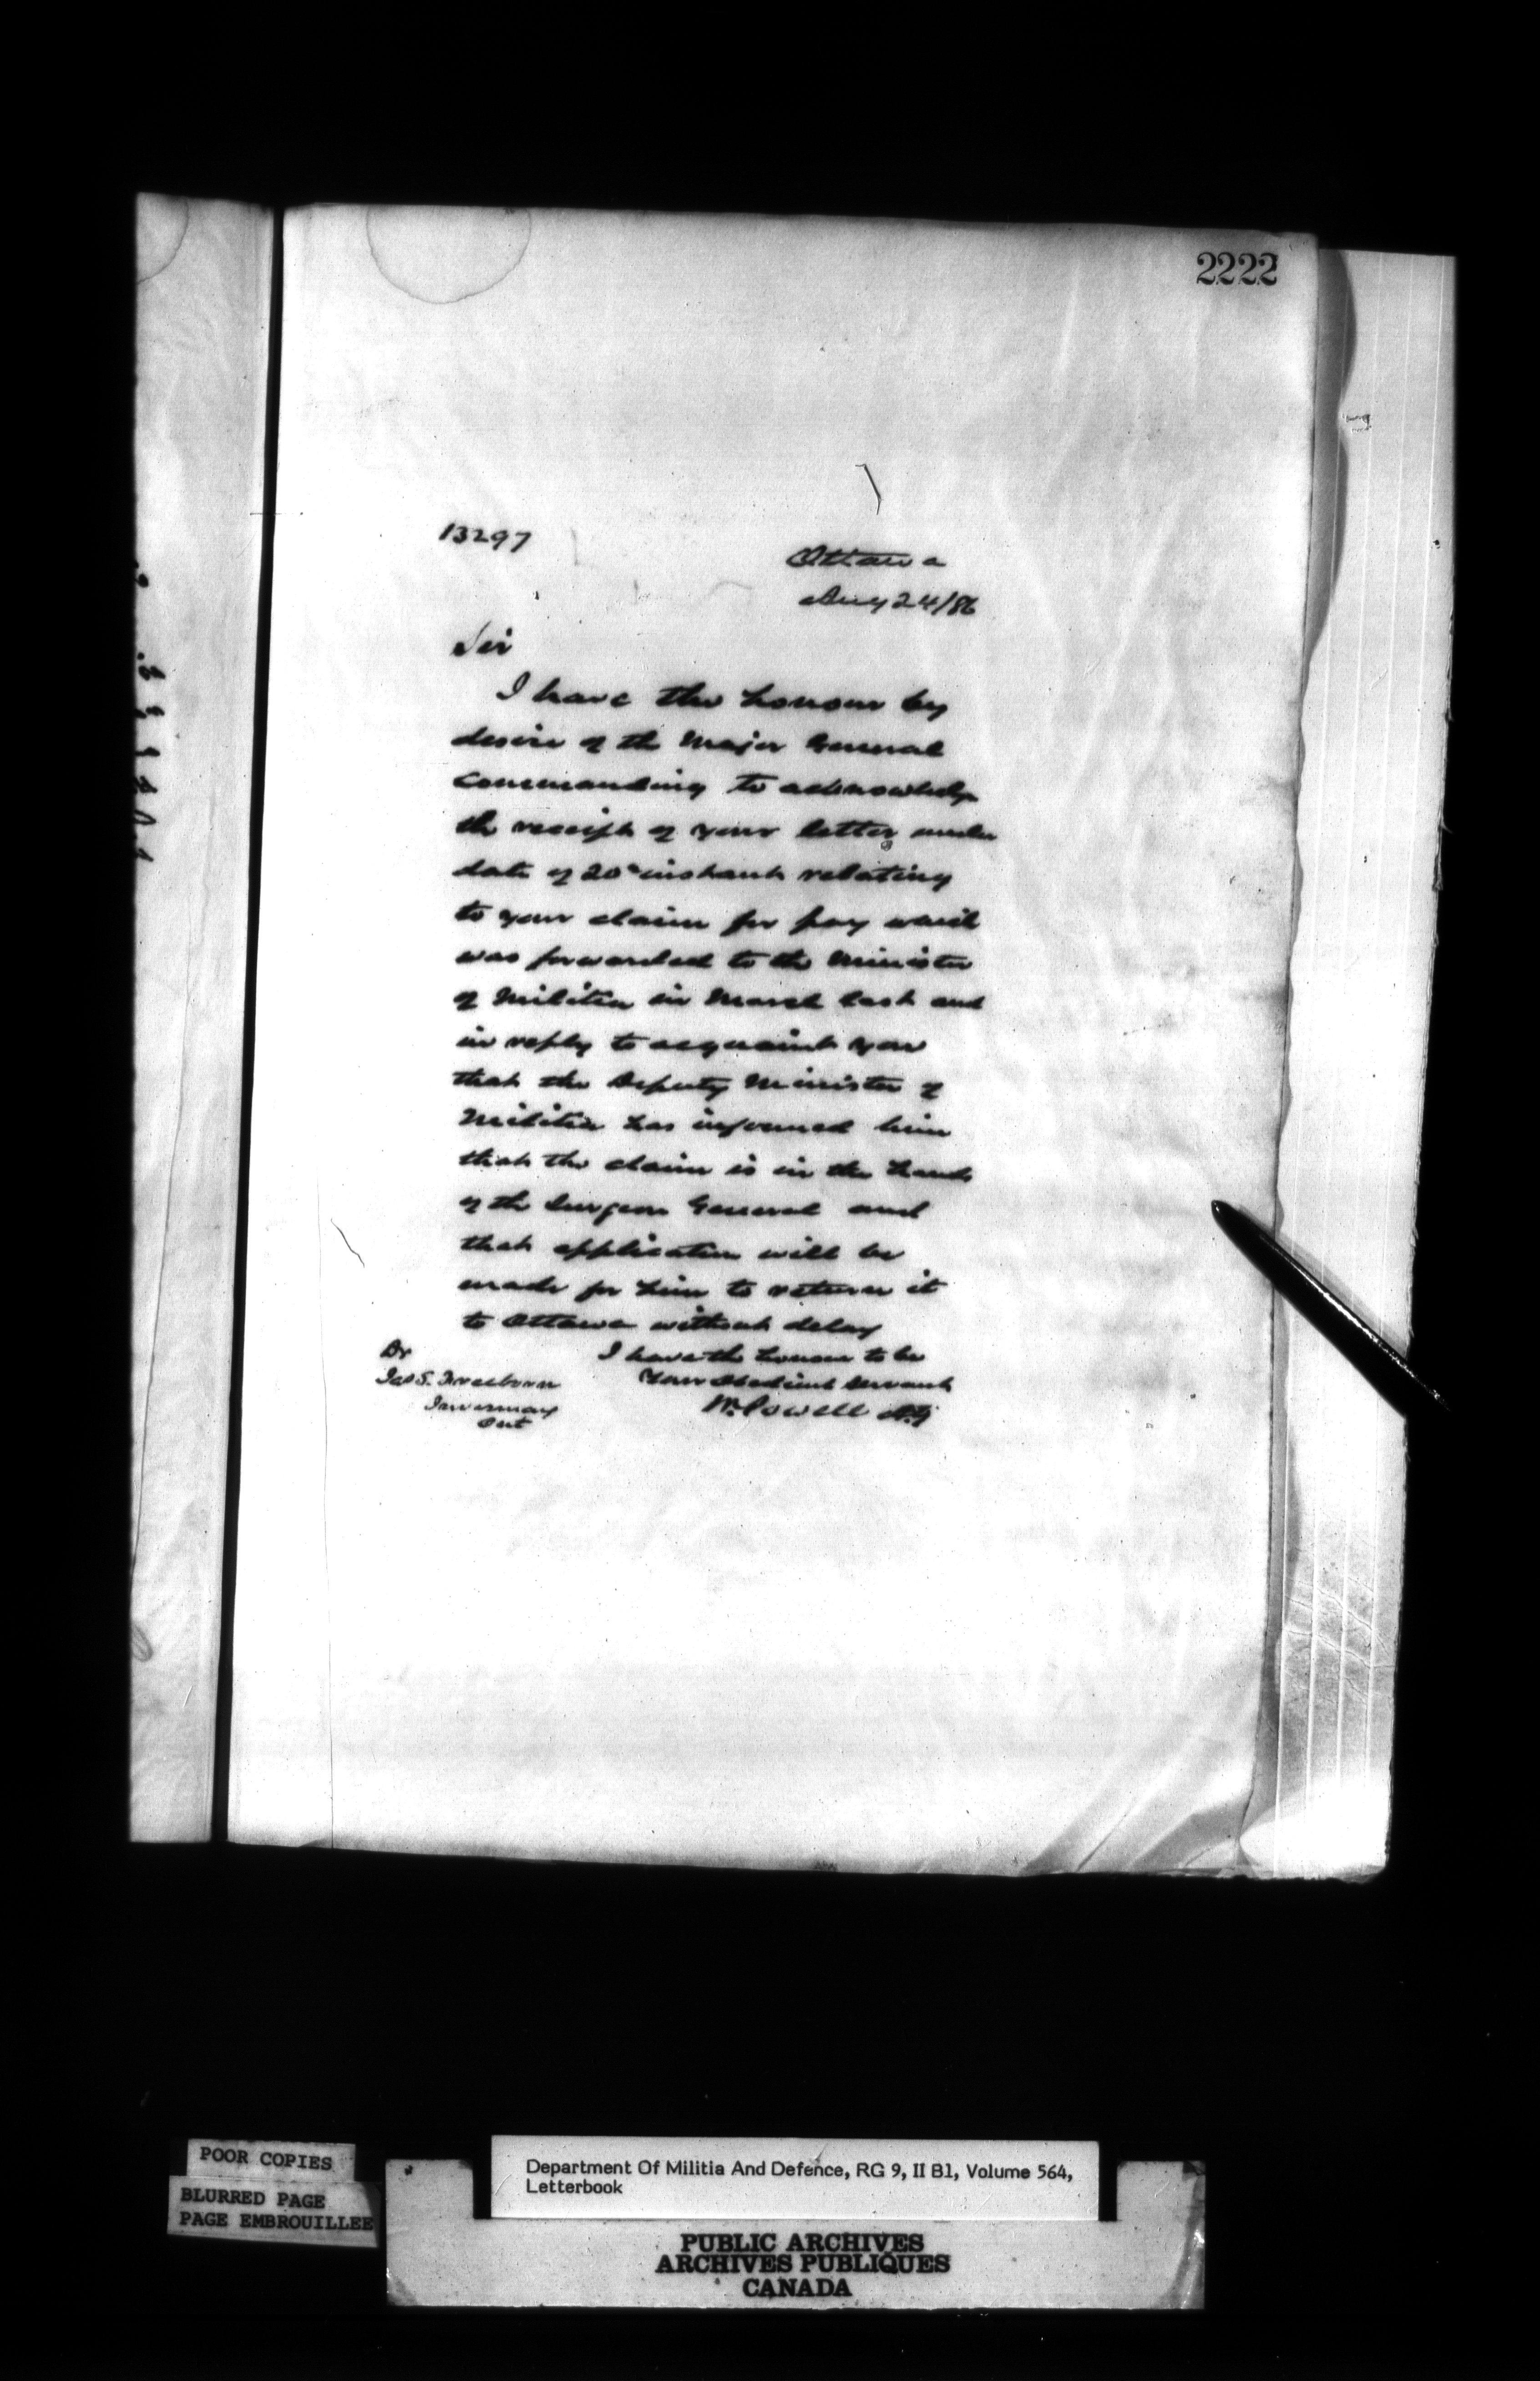 2222
13297
Ottawa
Aug 24/86
Sir
I have the honour by
desire of the Major General
Commanding to acknowledge
the receipt of your letter under
date of 20th instant relating
to your claim for pay which
was forwarded to the Minister
of Militia in March last and
in reply to acquaint you
that the Deputy Minister of
Militia has informed him
that the claim is in the hands
of the Surgeon General and
that application will be
made for him to return it
to Ottawa without delay
I have the honour to be
Your Obedient Servant
W. Powell A.G
Dr
Jas S. Freeborn
Invermay
Ont
POOR COPIES
BLURRED PAGE
PAGE EMBROUILLEE
Department Of Militia And Defence, RG 9, II B1, Volume 564,
Letterbook
PUBLIC ARCHIVES
ARCHIVES PUBLIQUES
CANADA